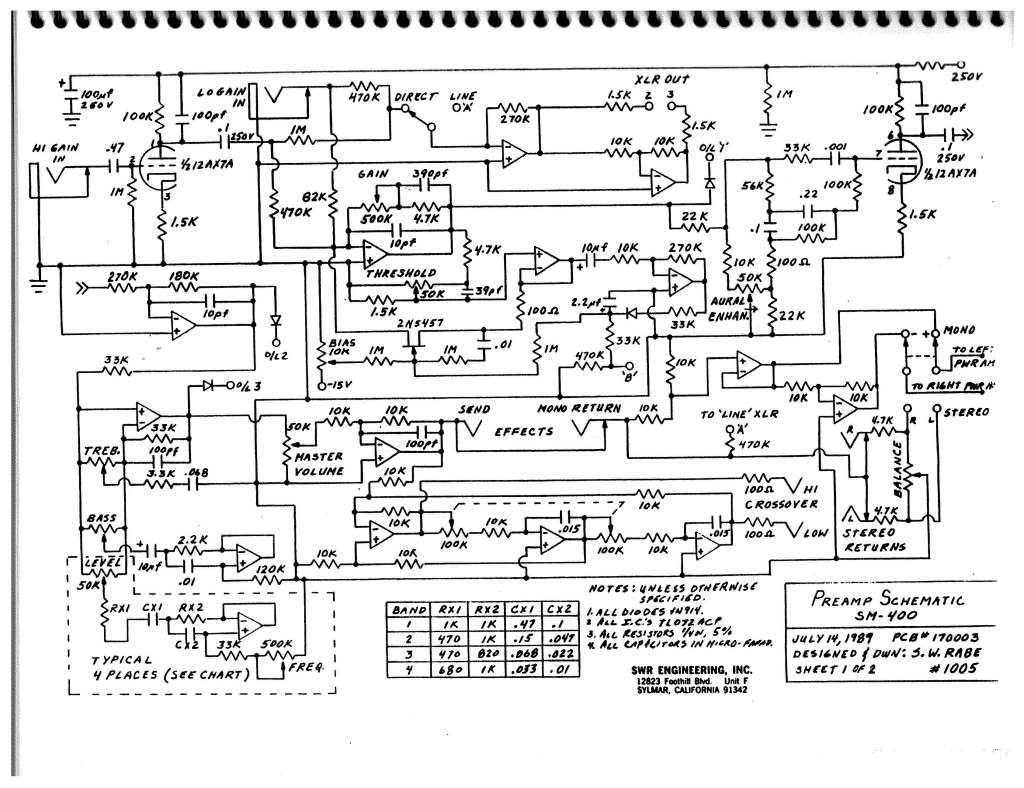 +
100µf
250V
100K
100pf
.1
250V
HI GAIN
IN
.47
2
1
½12AX7A
1M
3
1.5K
LO GAIN
IN
470K
1M
DIRECT
LINE
'A'
470K
82K
GAIN
390pf
500K
4.7K
10pf
270K
XLR OUT
1.5K
2
3
1.5K
10K
10K
O/L'Y'
1M
250V
100K
100pf
6
7
½12AX7A
8
.1
250V
1.5K
33K
.001
56K
100K
.22
.1
100K
22K
10K
100Ω
50K
AURAL
ENHAN.
22K
4.7K
THRESHOLD
50K
39pf
1.5K
10µf
+
10K
270K
2.2µf
+
33K
100Ω
2N5457
BIAS
10K
1M
1M
.01
1M
33K
470K
'B'
-15V
270K
180K
10pf
O/L2
33K
O/L3
33K
100pf
TREB.
3.3K
.068
BASS
LEVEL
50K
+
10µf
2.2K
.01
120K
RX1
CX1
RX2
CX2
33K
500K
FREQ.
TYPICAL
4 PLACES (SEE CHART)
50K
MASTER
VOLUME
10K
10K
100pf
10K
SEND
EFFECTS
MONO RETURN
10K
10K
TO 'LINE' XLR
'A'
470K
10K
10K
- +
MONO
TO LEFT
PWR AM
TO RIGHT PWR A
STEREO
R
L
4.7K
R
BALANCE
L
4.7K
STEREO
RETURNS
100Ω
HI
CROSSOVER
10K
100Ω
LOW
10K
100K
10K
.015
100K
10K
.015
10K
10K
BAND RX1 RX2 CX1 CX2
1 1K 1K .47 .1
2 470 1K .15 .047
3 470 820 .068 .022
4 680 1K .033 .01
NOTES: UNLESS OTHERWISE
SPECIFIED.
1. ALL DIODES 1N914.
2 ALL I.C.'S TL072ACP
3. ALL RESISTORS ¼W, 5%
4. ALL CAPACITORS IN MICRO-FARAD.
SWR ENGINEERING, INC.
12823 Foothill Blvd. Unit F
SYLMAR, CALIFORNIA 91342
PREAMP SCHEMATIC
SM-400
JULY 14, 1989 PCB# 170003
DESIGNED & DWN: S.W. RABE
SHEET 1 OF 2 #1005